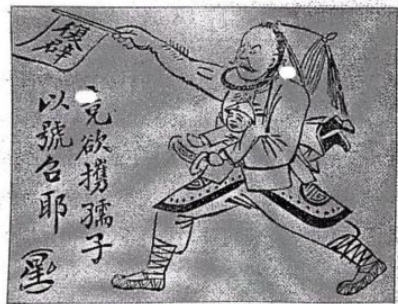 復辟
竟欲攜孺子
以號召耶